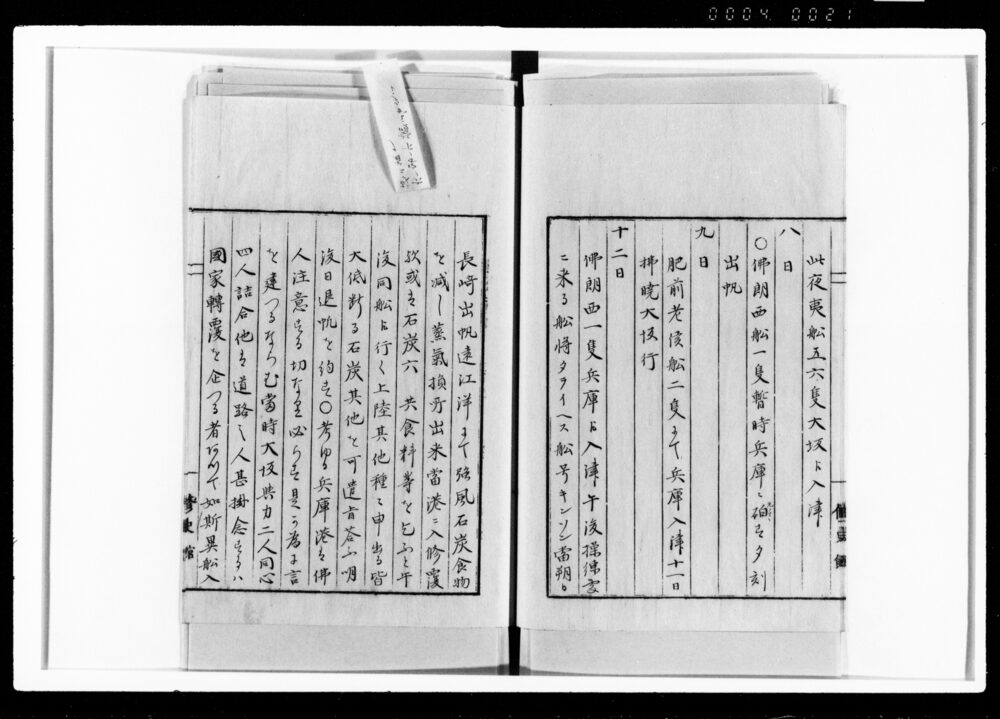 0004 0021
此夜夷船五六隻大坂ゟ入津
八日
○佛朗西船一隻暫時兵庫ニ碇泊夕刻
出帆
九日
肥前老侯船二隻ニて兵庫入津十一日
拂曉大坂行
十二日
佛朗西一隻兵庫ゟ入津午後
ニ来る船将 船号キンシン當朔日
長崎出帆遠江洋ニて強風石炭食物
を減し蒸氣損所出来當港ニ入修覆
或は石炭 共食料等を乞ふと午
後同船ゟ行く上陸其他種々申出る皆
大低断る石炭其他を可遣旨答ふ明
後日退帆を約す○考ゆる兵庫港は佛
人注意する切なり必らす是か為に言
を建つるならむ當時大坂與力二人同心
四人詰合他は道路之人甚掛念するハ
國家轉覆を企つる者ありて如斯異船入
修史館